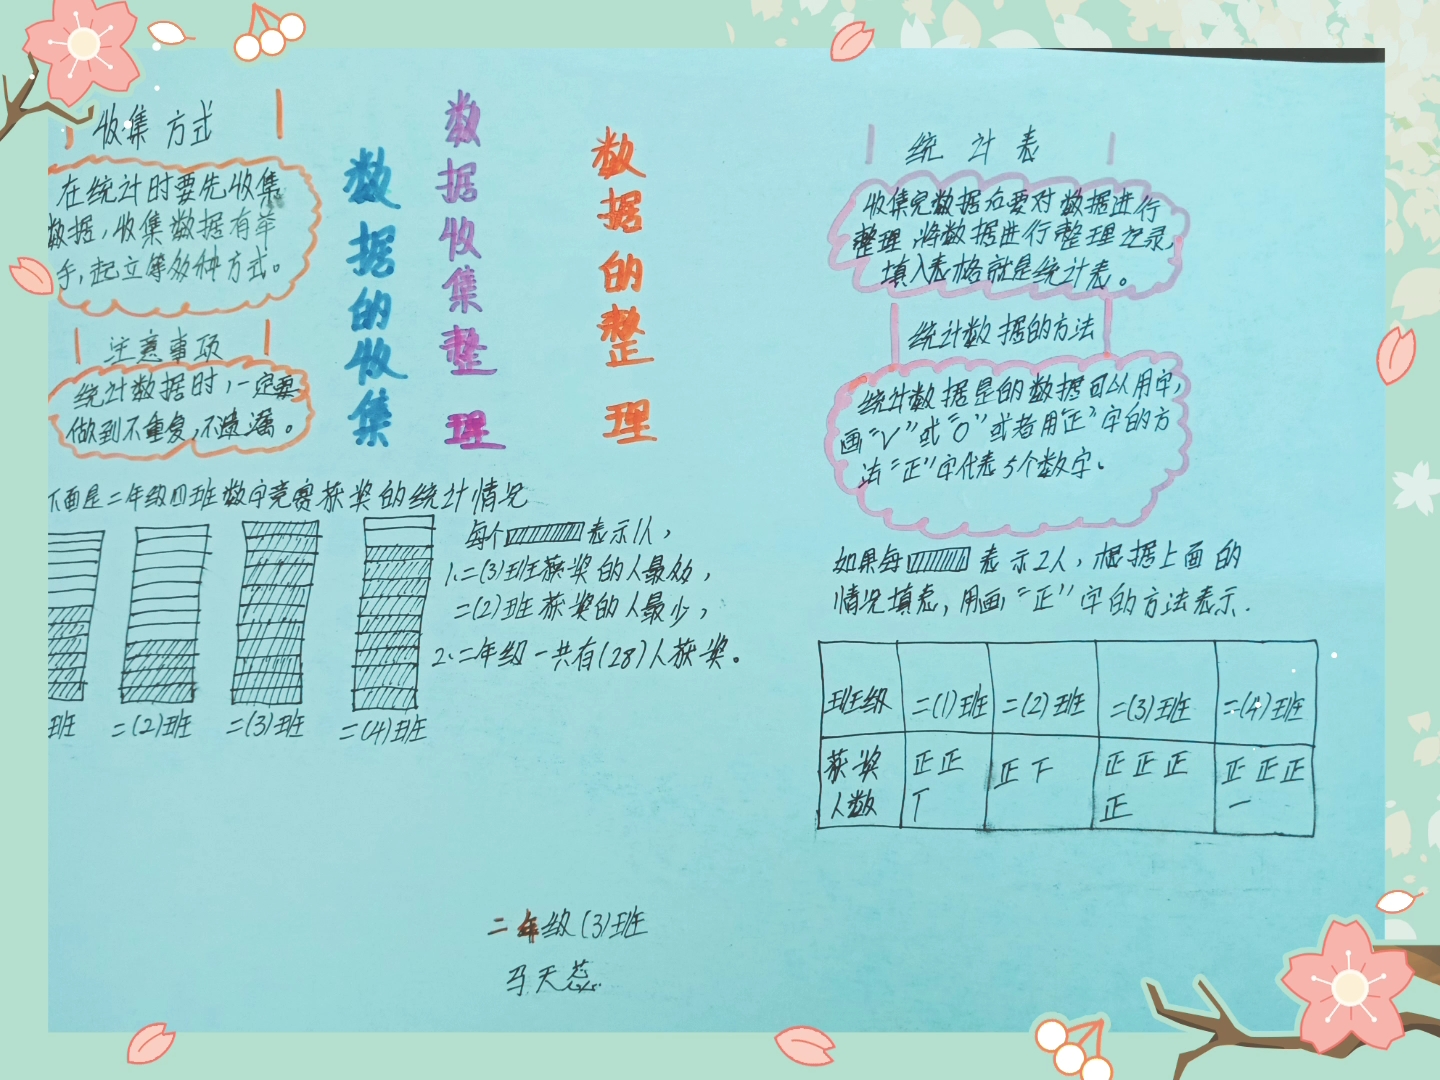 收集方式
在统计时要先收集
数据，收集数据有举
手，起立等多种方式。
注意事项
统计数据时，一定要
做到不重复，不遗漏。
数据的收集
数据收集整理
数据的整理
统计表
收集完数据后要对数据进行
整理，将数据进行整理记录，
填入表格就是统计表。
统计数据的方法
统计数据是的数据可以用字，
画“√”或“○”或者用“正”字的方
法“正”字代表5个数字。
下面是二年级四班数字竞赛获奖的统计情况
班
二(2)班
二(3)班
二(4)班
每个 表示1人，
1.二(3)班获奖的人最多，
二(2)班获奖的人最少，
2.二年级一共有(28)人获奖。
如果每 表示2人，根据上面的
情况填表，用画“正”字的方法表示.
班级 二(1)班 二(2)班 二(3)班 二(4)班
获奖人数 正正丅 正下 正正正正 正正正一
二年级(3)班
马天蕊